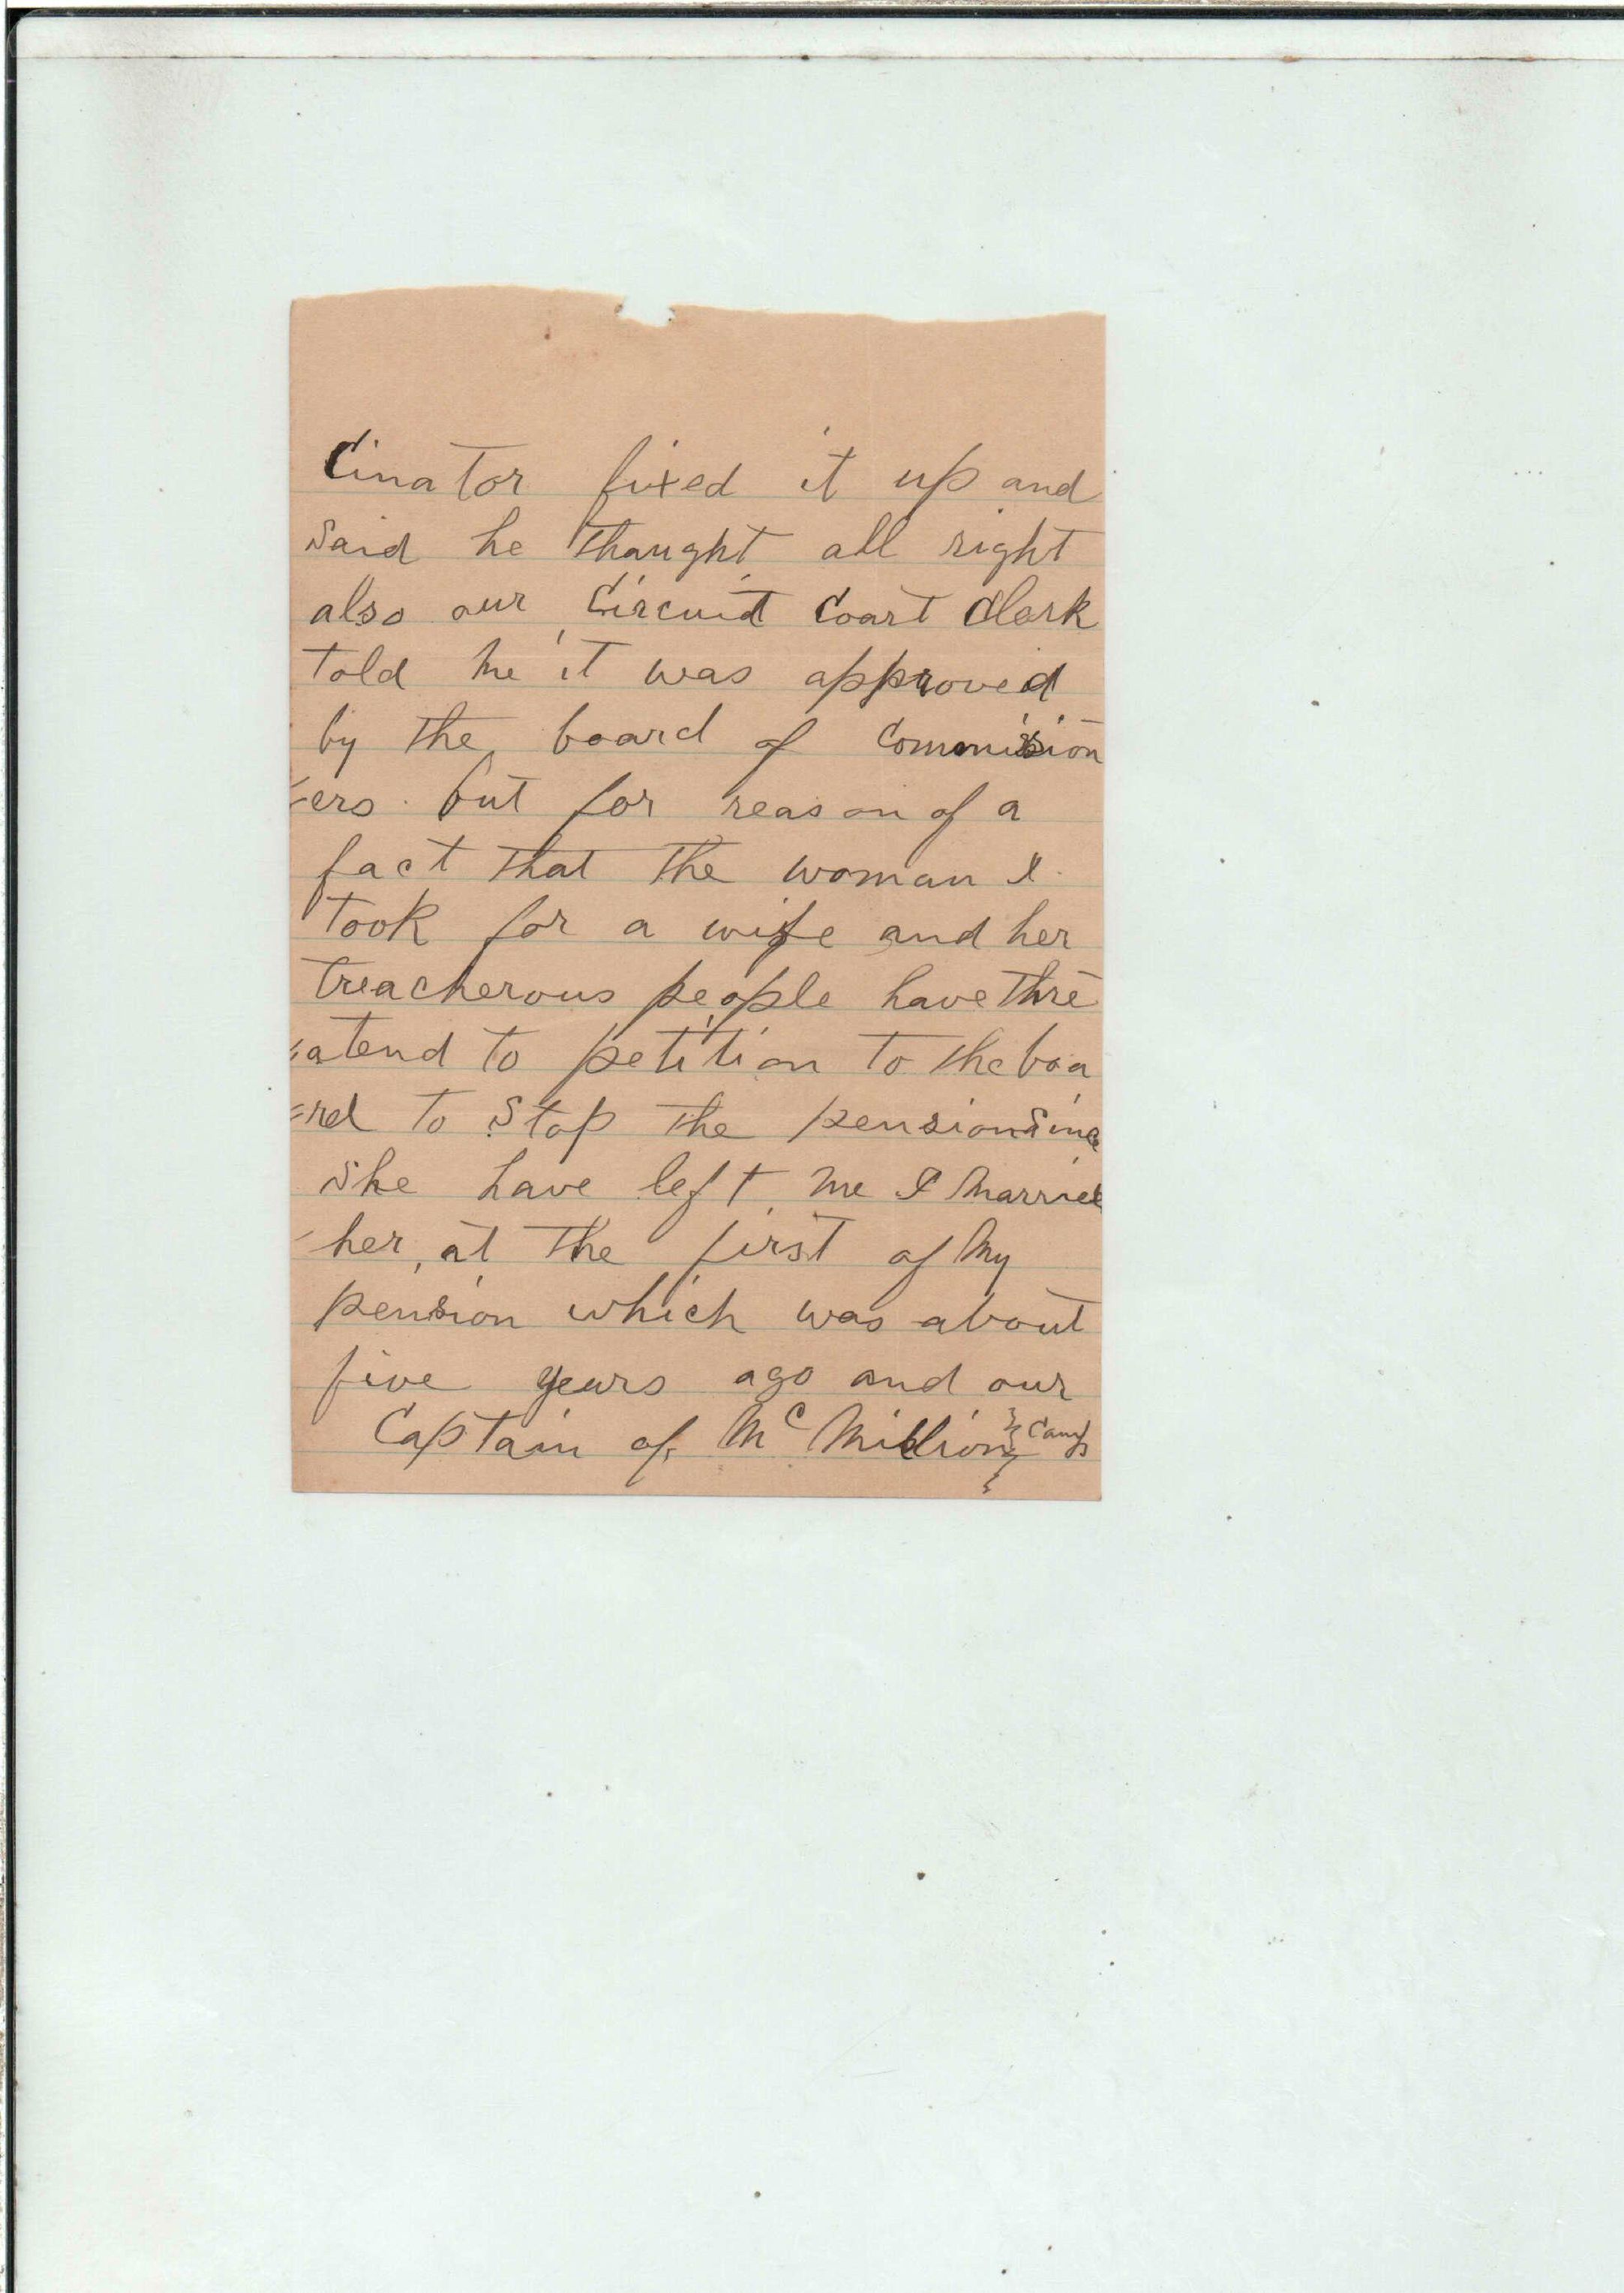 Cinator fixed it up and
said he thaught all right
also our Circuit Coart Clerk
told me it was approved
by the board of Commision
=ers. but for reason of a
fact that the woman I
took for a wife and her
treacherous people have thre
=atend to petition to the boa
=rd to stop the pension since
she have left me I married
her, at the first of my
pension which was about
five years ago and our
Captain of McMillion Camp